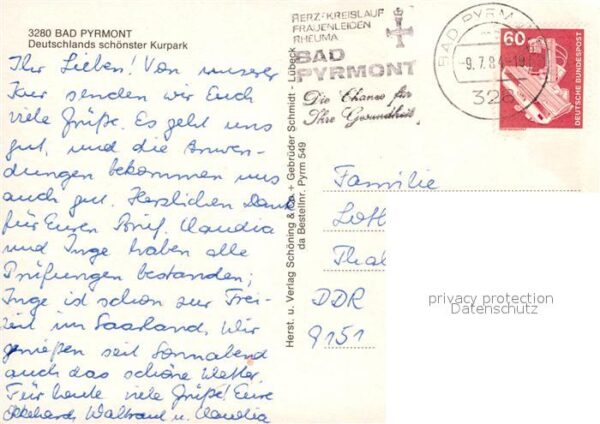 3280 BAD PYRMONT
Deutschlands schönster Kurpark
Ihr Lieben! Von unserer
Kur senden wir Euch
viele Grüße. Es geht uns
gut, und die Anwen-
dungen bekommen uns
auch gut. Herzlichen Dank
für Euren Brief. Claudia
und Inge haben alle
Prüfungen bestanden;
Inge ist schon zur Frei-
zeit im Saarland. Wir
genießen seit Sonnabend
auch das schöne Wetter.
Für heute viele Grüße! Eure
Waltraud u. Claudia
Herst. u. Verlag Schöning & Co. + Gebrüder Schmidt - Lübeck
da Bestellnr. Pyrm 549
HERZ-KREISLAUF
FRAUENLEIDEN
RHEUMA
BAD
PYRMONT
Die Chance für
Ihre Gesundheit
BAD PYRMONT
-9.7.8
328
60
DEUTSCHE BUNDESPOST
Familie
Loth
Thal
DDR
9151
privacy protection
Datenschutz